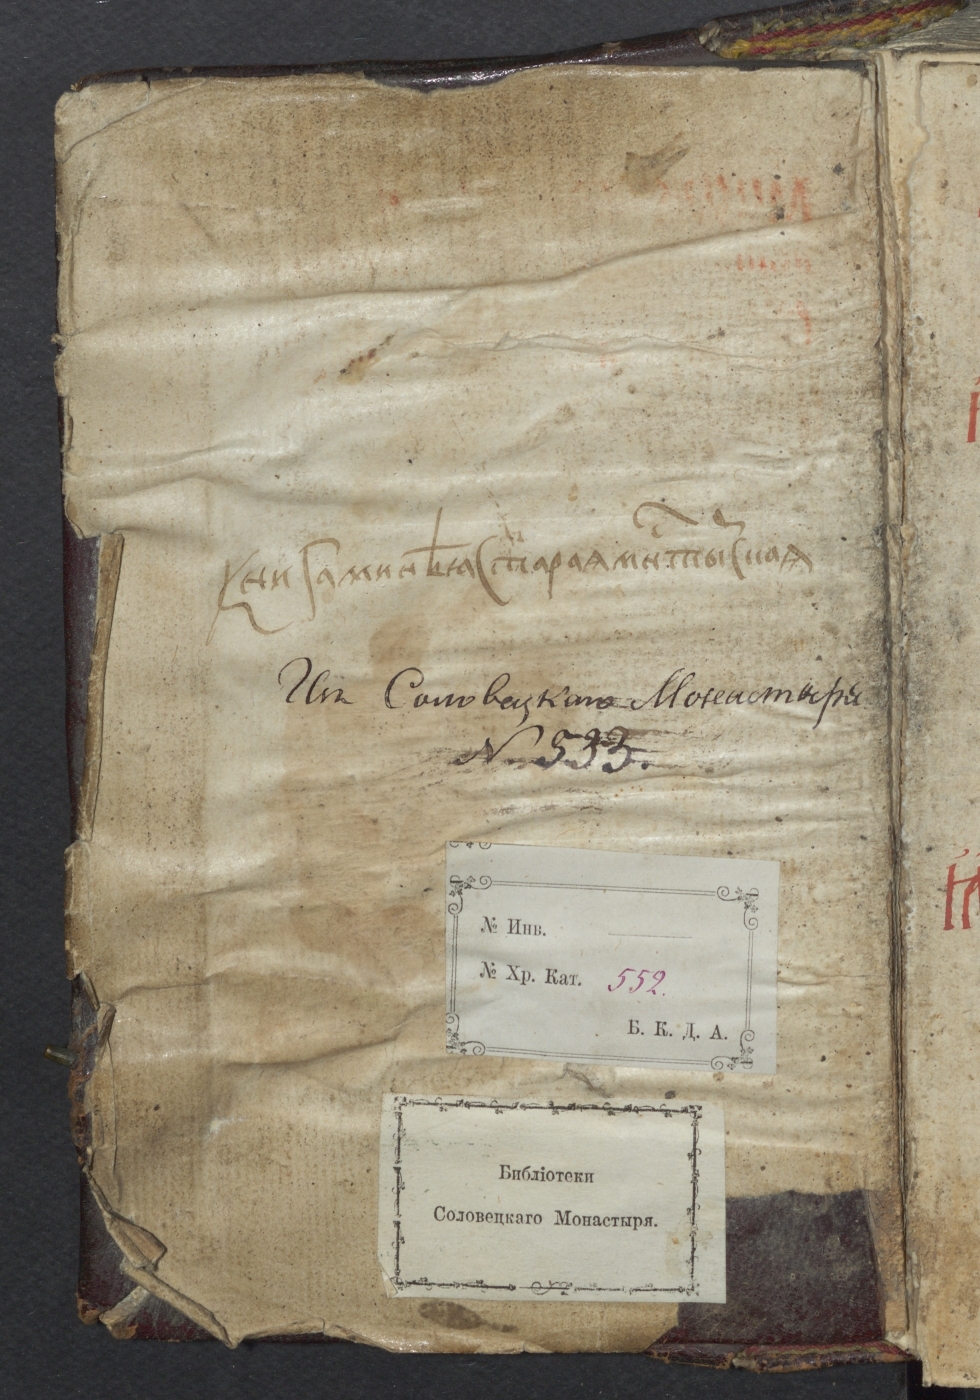 Книга минѣя старая мнтырская
Изъ Соловецкаго Монастыря
№ 533.
№ Инв.
№ Хр. Кат. 552.
Б. К. Д. А.
Библіотеки
Соловецкаго Монастыря.